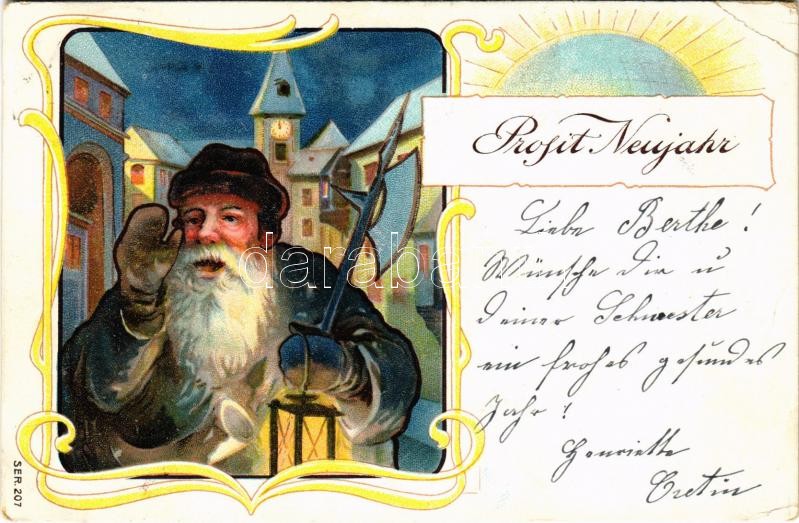 Prosit Neujahr
Liebe Berthe!
Wünsche dir u
deiner Schwester
ein frohes gesundes
Jahr!
Henriette
Cretin
SER. 207
daraba